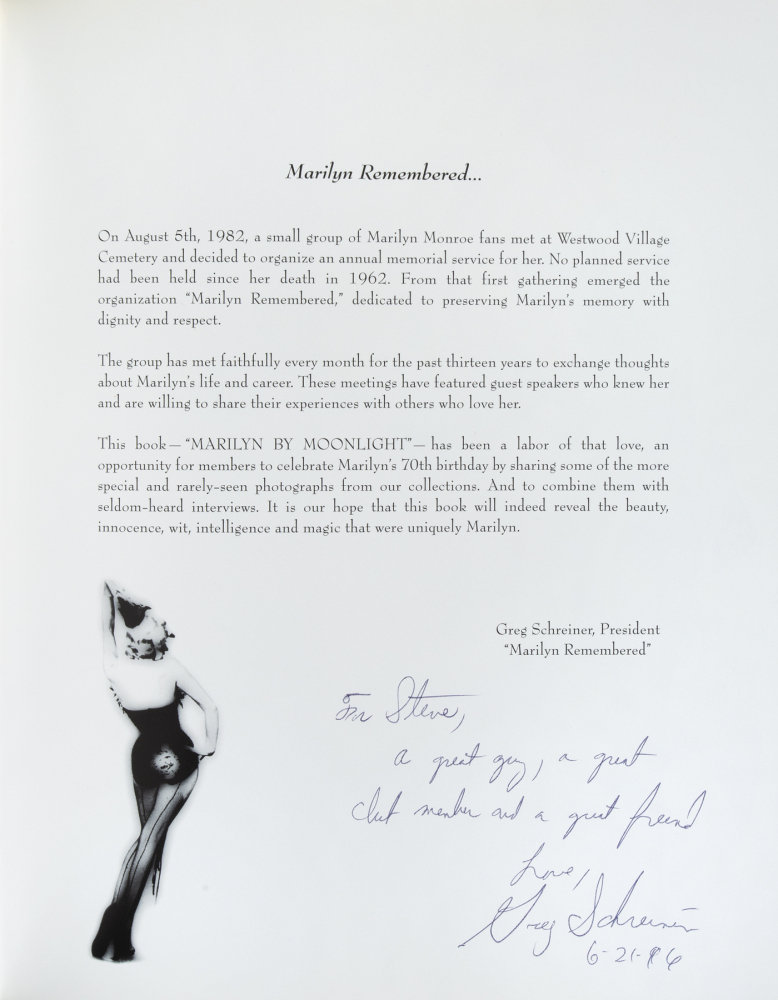 Marilyn Remembered...
On August 5th, 1982, a small group of Marilyn Monroe fans met at Westwood Village
Cemetery and decided to organize an annual memorial service for her. No planned service
had been held since her death in 1962. From that first gathering emerged the
organization “Marilyn Remembered,” dedicated to preserving Marilyn's memory with
dignity and respect.
The group has met faithfully every month for the past thirteen years to exchange thoughts
about Marilyn's life and career. These meetings have featured guest speakers who knew her
and are willing to share their experiences with others who love her.
This book — “MARILYN BY MOONLIGHT” — has been a labor of that love, an
opportunity for members to celebrate Marilyn's 70th birthday by sharing some of the more
special and rarely-seen photographs from our collections. And to combine them with
seldom-heard interviews. It is our hope that this book will indeed reveal the beauty,
innocence, wit, intelligence and magic that were uniquely Marilyn.
Greg Schreiner, President
“Marilyn Remembered”
For Steve,
a great guy, a great
club member and a great friend
Love,
Greg Schreiner
6-21-96